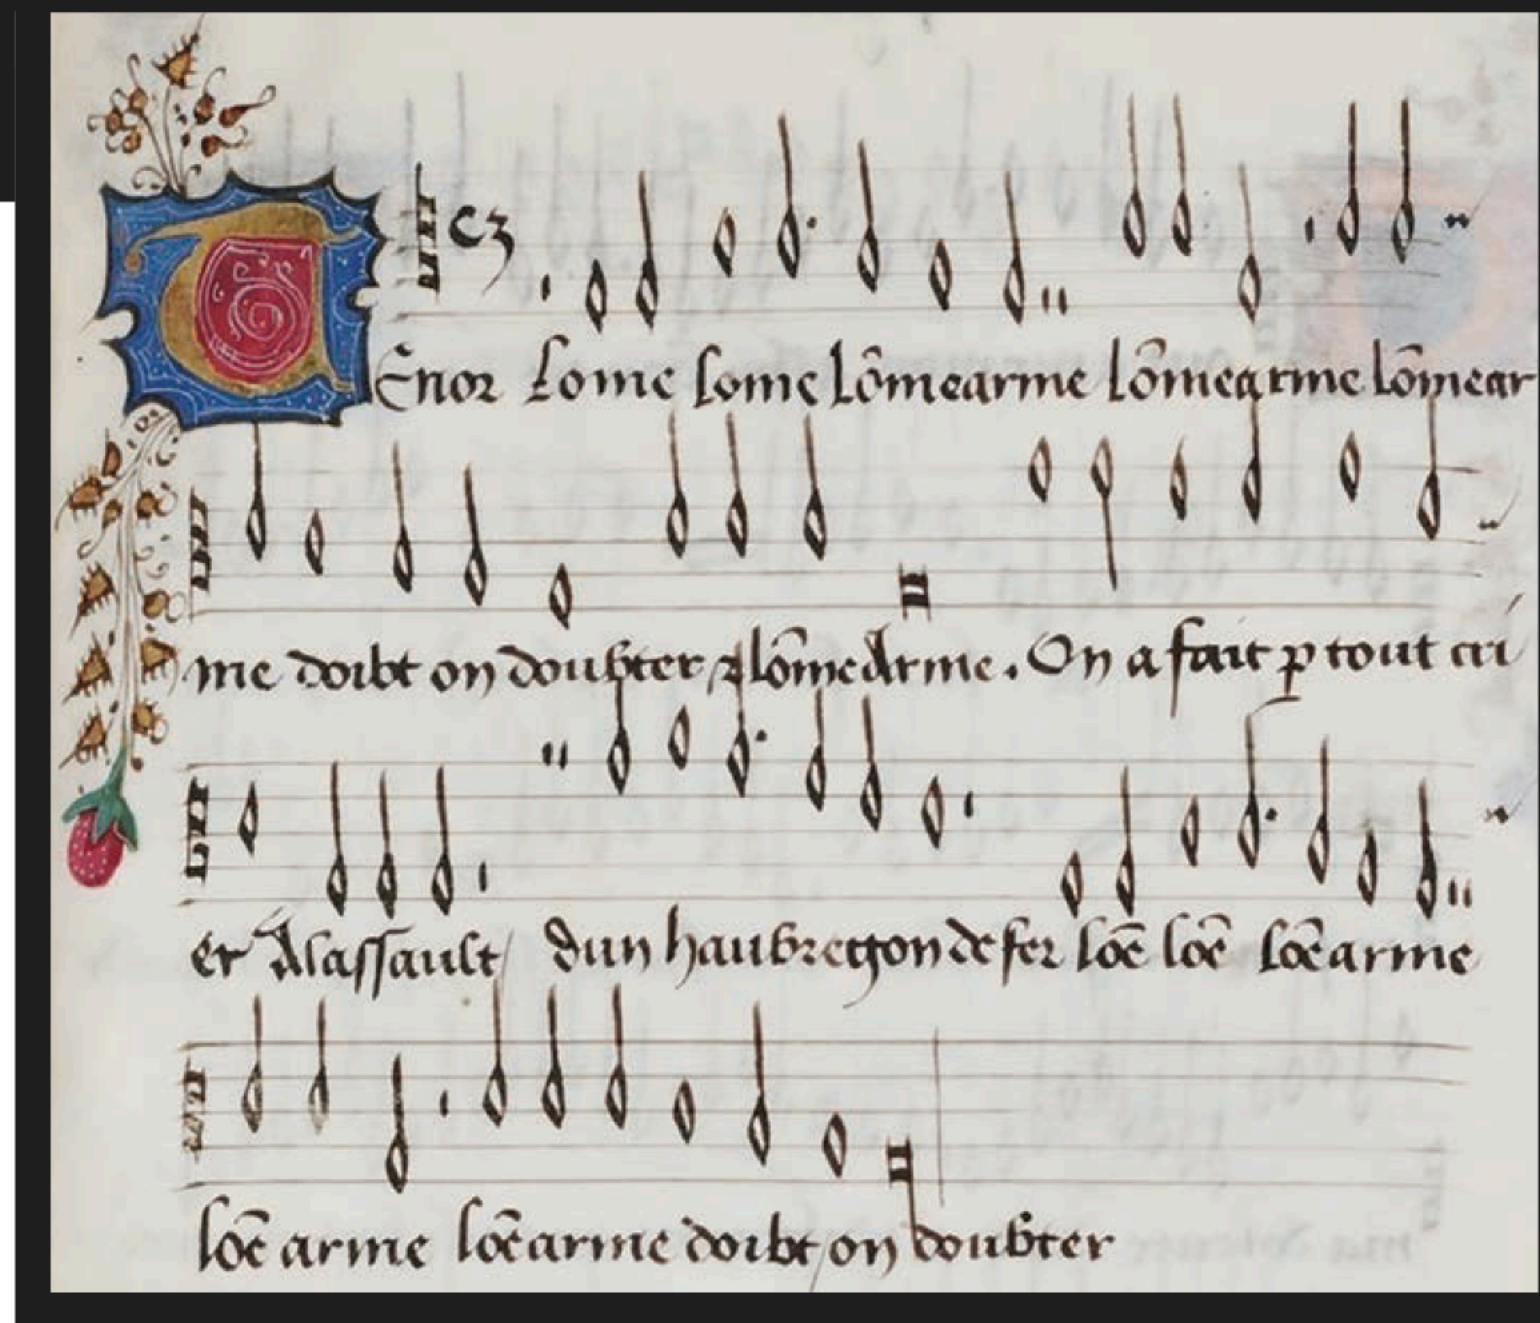 TEnor Lome lome lōmearme lōmearme lōmear
me doibt on doubter lōme Arme. On a fait p̱ tout cri
er Alassault dun haubregon de fer lōe lōe lōe arme
lōe arme lōe arme doibt on doubter